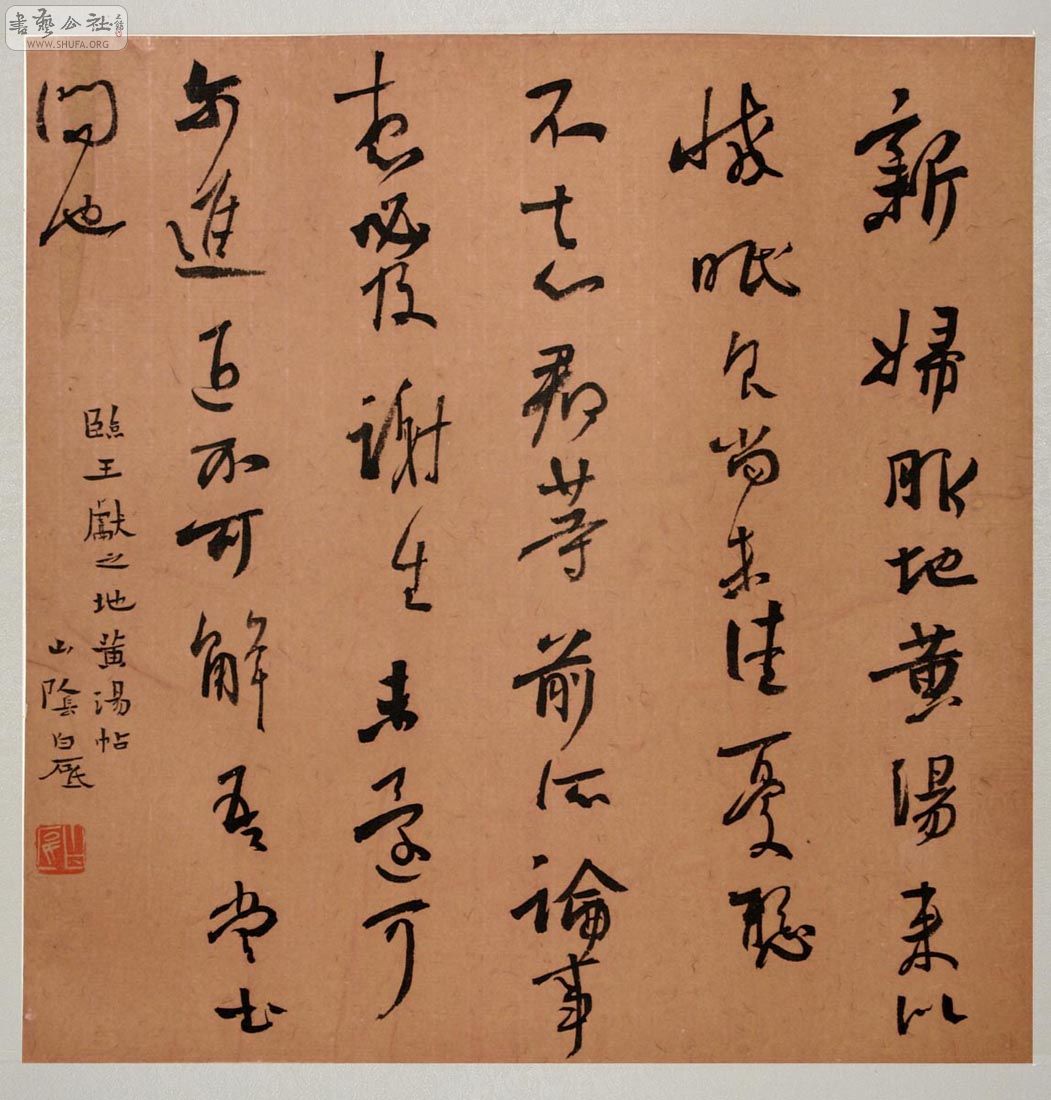 書藝公社
WWW.SHUFA.ORG
新婦服地黄湯来似
減眠食尚未佳憂懸
不去心君等前所論事
想必及謝生未還可
尔進退不可解吾當書
問也
臨王獻之地黄湯帖
山陰白砥